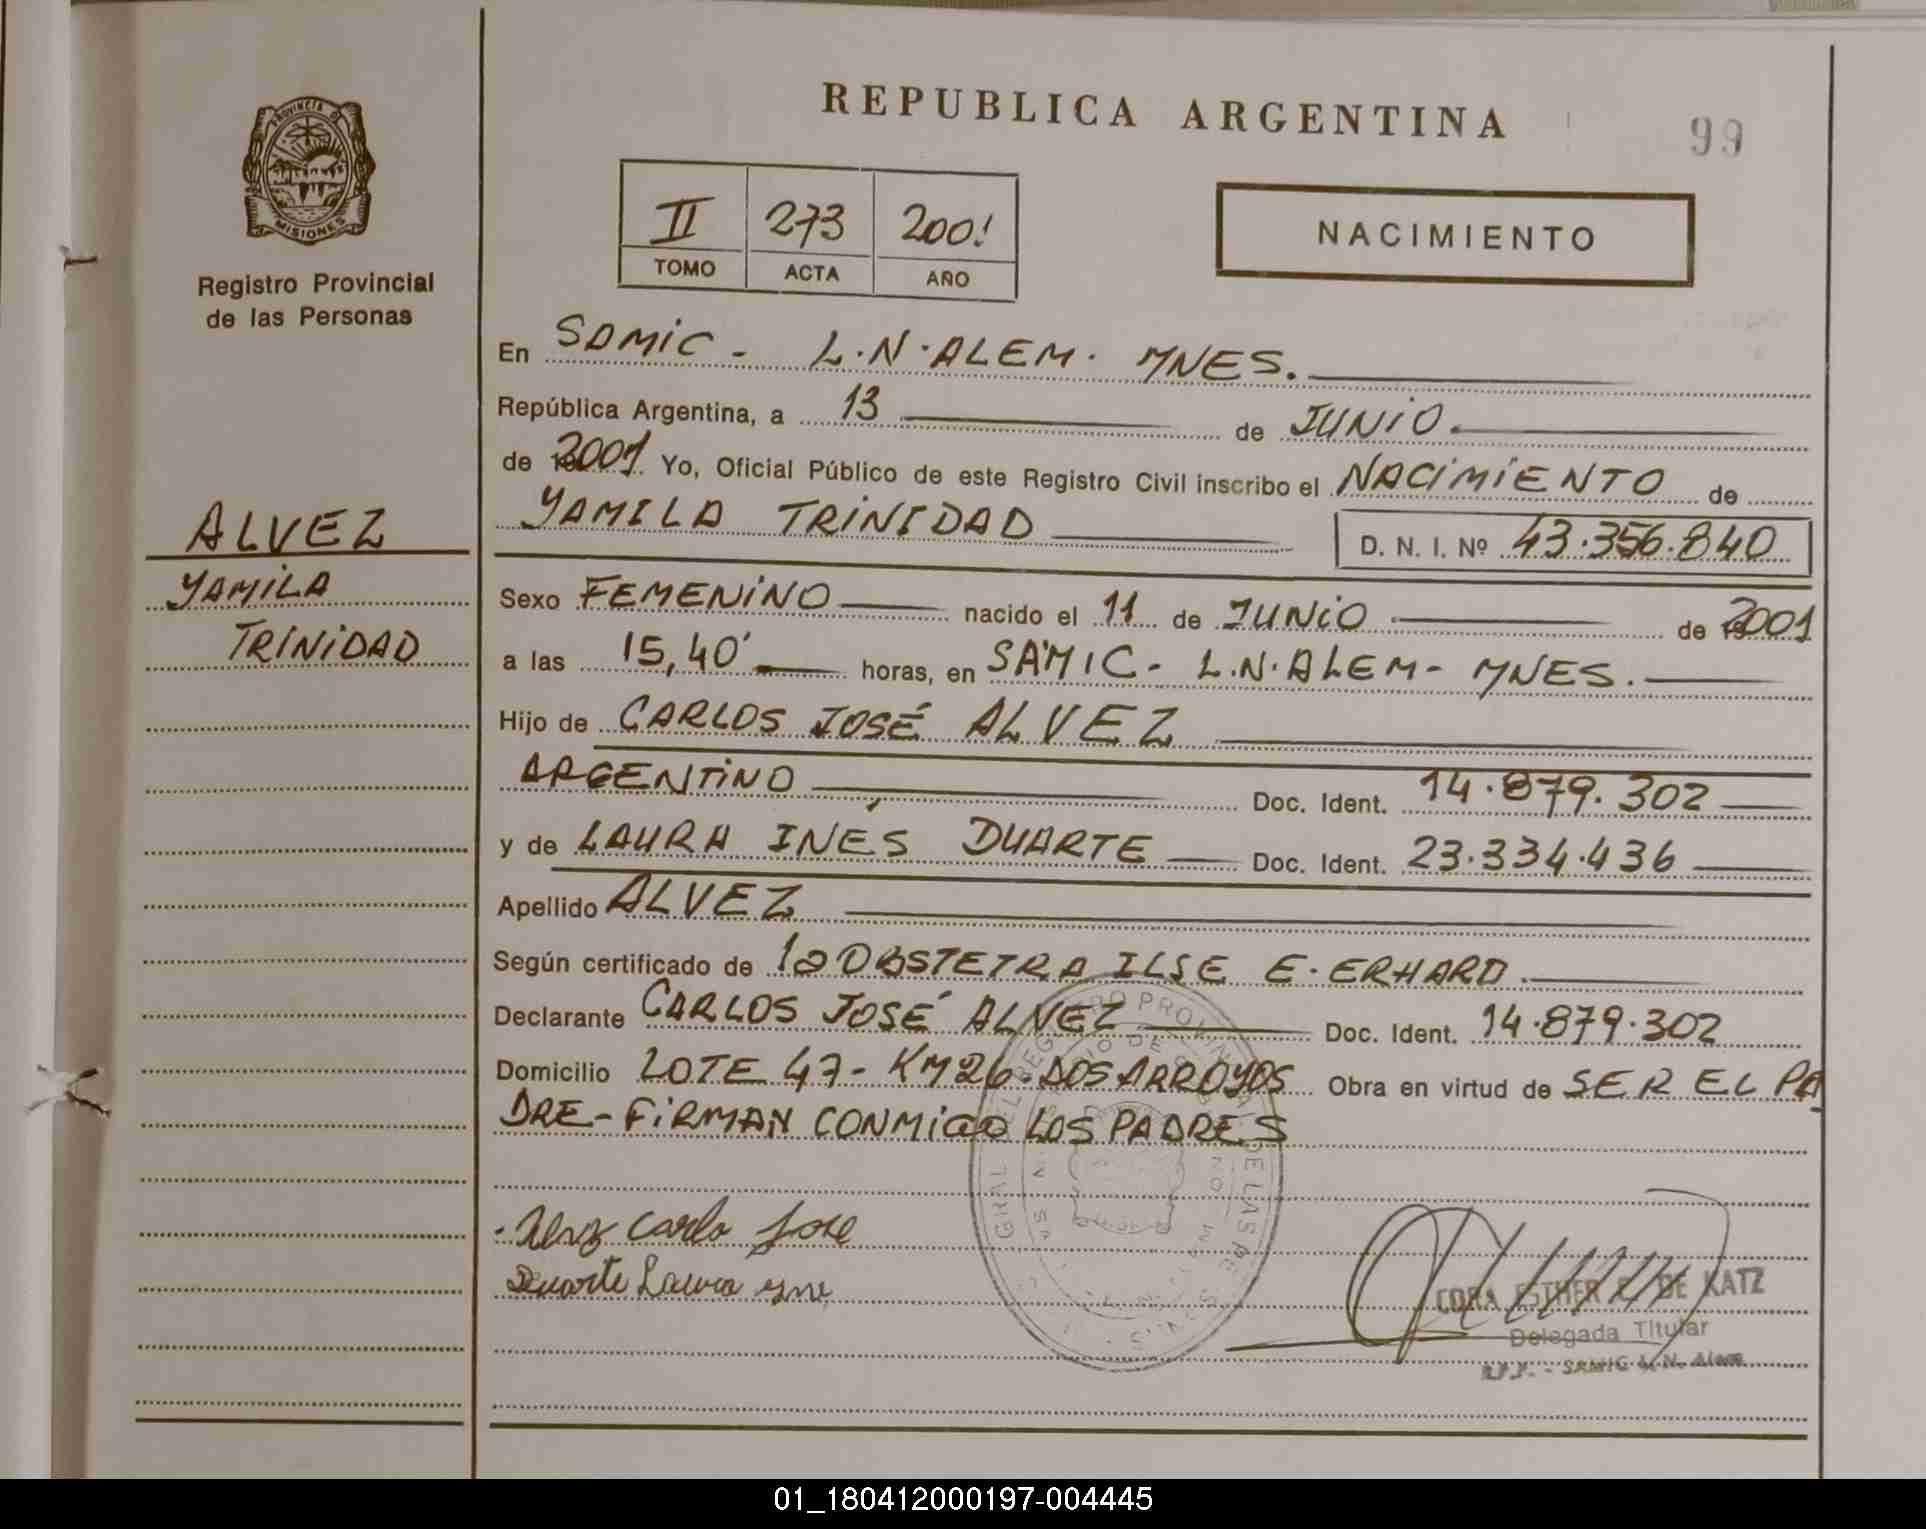 REPUBLICA ARGENTINA
99
PROVINCIA DE
MISIONES
Registro Provincial
de las Personas
II 273 2001
TOMO ACTA AÑO
NACIMIENTO
En SAMIC - L.N. ALEM. MNES.
República Argentina, a 13 de JUNIO.
de 2001 Yo, Oficial Público de este Registro Civil inscribo el NACIMIENTO de
YAMILA TRINIDAD D. N. I. Nº 43.356.840
ALVEZ
YAMILA
TRINIDAD
Sexo FEMENINO nacido el 11 de JUNIO de 2001
a las 15,40' horas, en SAMIC - L.N. ALEM - MNES.
Hijo de CARLOS JOSÉ ALVEZ
ARGENTINO Doc. Ident. 14.879.302
y de LAURA INÉS DUARTE Doc. Ident. 23.334.436
Apellido ALVEZ
Según certificado de la OBSTETRA ILSE E. ERHARD.
Declarante CARLOS JOSÉ ALVEZ Doc. Ident. 14.879.302
Domicilio LOTE 47 - KM 26. DOS ARROYOS Obra en virtud de SER EL PA
DRE - FIRMAN CONMIGO LOS PADRES
Carlo Jose
Duarte Laura
CORA ESTHER DE KATZ
Delegada Titular
SAMIC L. N. Alem
01_180412000197-004445